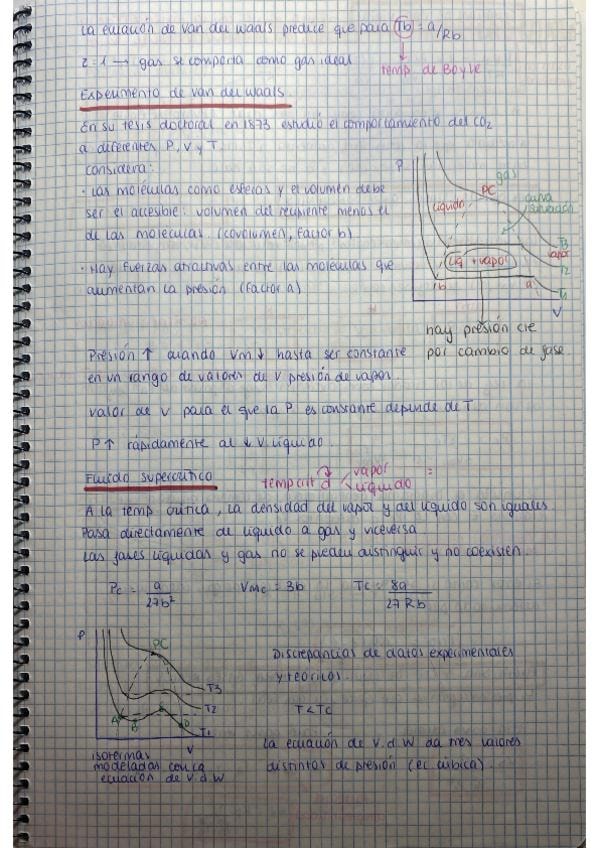 La ecuación de van der waals predice que para Tb = a/Rb
z = 1 → gas se comporta como gas ideal
temp de Boyle
Experimento de van der waals
En su tesis doctoral en 1873 estudió el comportamiento del CO2
a diferentes P, V y T.
considera:
· Las moléculas como esferas y el volumen debe
ser el accesible: volumen del recipiente menos el
de las moléculas (covolumen, factor b)
· Hay fuerzas atractivas entre las moléculas que
aumentan la presión (factor a)
P
gas
PC
líquido
curva
T3
vapor
liq + vapor
T2
b
a
T1
V
hay presión cte
por cambio de fase
Presión ↑ cuando Vm ↓ hasta ser constante
en un rango de valores de V presión de vapor.
valor de V para el que la P es constante depende de T
P ↑ rápidamente al ↓ V líquido.
Fluido supercrítico
temp crit d vapor =
líquido
A la temp crítica, la densidad del vapor y del líquido son iguales
Pasa directamente de líquido a gas y viceversa
Las fases líquidas y gas no se pueden distinguir y no coexisten.
Pc = a/27b² Vmc = 3b Tc = 8a/27Rb
P
PC
T3
T2
A
B
D
T1
V
isotermas
modeladas con la
ecuación de v.d.W
Discrepancias de datos experimentales
y teóricos.
T < Tc
La ecuación de v.d.W da tres valores
distintos de presión (ec cúbica).